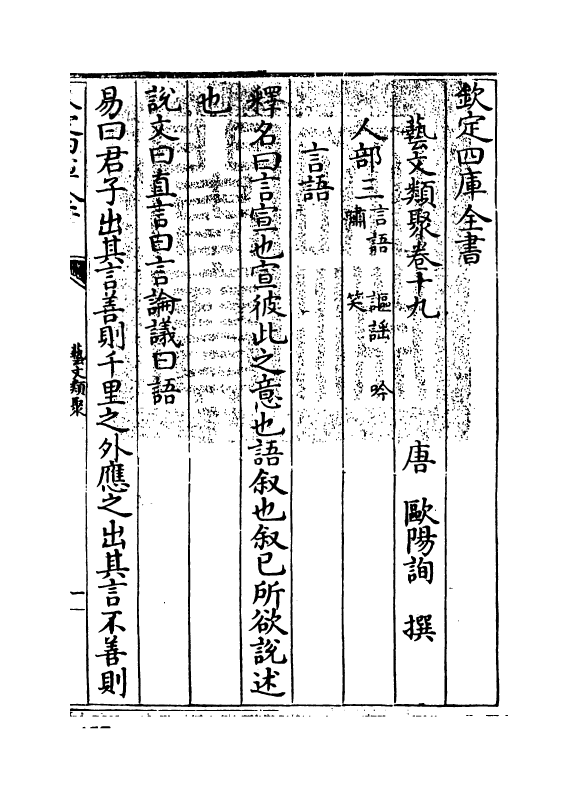 欽定四庫全書
藝文類聚卷十九
唐 歐陽詢 撰
人部三 言語 謳謠 吟
嘯 笑
言語
釋名曰言宣也宣彼此之意也語叙也叙已所欲說述
也
說文曰直言曰言論議曰語
易曰君子出其言善則千里之外應之出其言不善則
藝文類聚
一